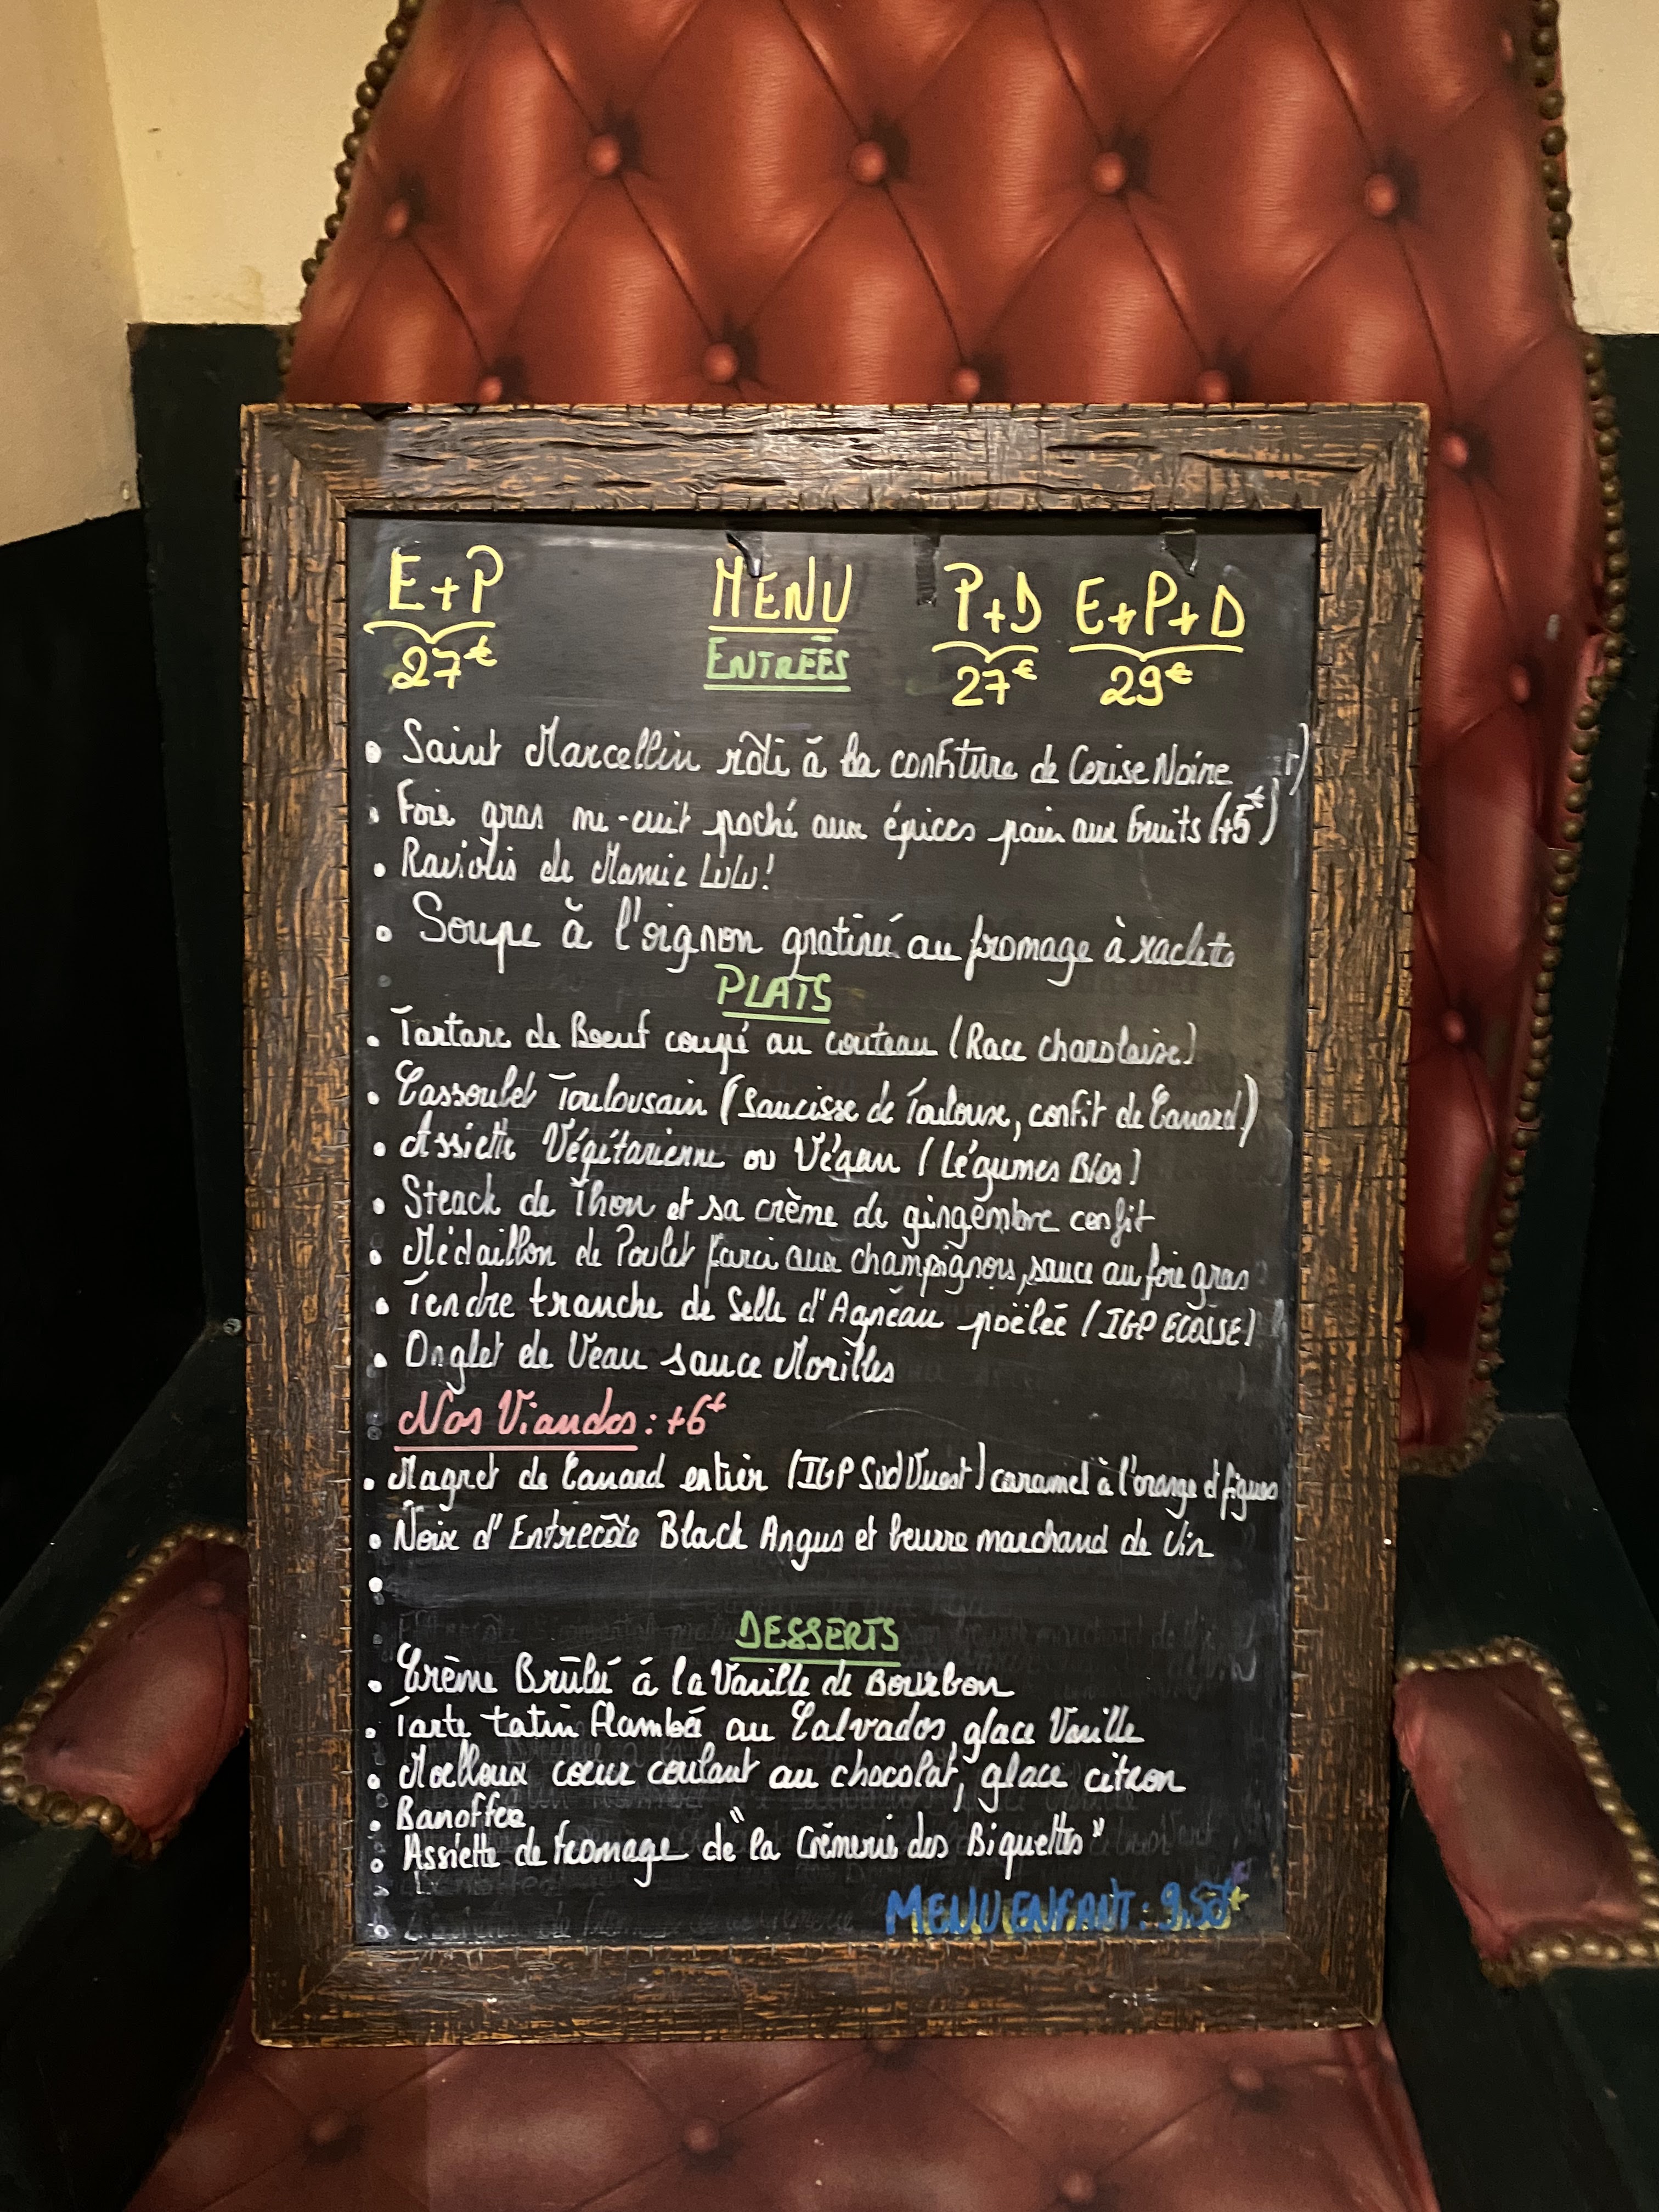 E+P MENU P+D E+P+D
27€ ENTREES 27€ 29€
• Saint Marcellin rôti à la confiture de Cerise Noire
• Foie gras mi-cuit poché aux épices pain aux fruits (+5€)
• Raviolis de Mamie Lulu!
• Soupe à l'oignon gratiné au fromage à raclette
PLATS
• Tartare de Boeuf coupé au couteau (Race charolaise)
• Cassoulet Toulousain (Saucisse de Toulouse, confit de Canard)
• Assiette Végétarienne ou Végan (Légumes Bios)
• Steack de Thon et sa crème de gingembre confit
• Médaillon de Poulet farci aux champignons, sauce au foie gras
• Tendre tranche de Selle d'Agneau poëlée (IGP ECOSSE)
• Onglet de Veau sauce Morilles
Nos Viandes : +6€
• Magret de Canard entier (IGP Sud Ouest) caramel à l'orange et figues
• Noix d'Entrecôte Black Angus et beurre marchand de vin
•
DESSERTS
• Crème Brûlée à la Vanille de Bourbon
• Tarte tatin flambée au Calvados, glace Vanille
• Moelleux coeur coulant au chocolat, glace citron
• Banoffee
• Assiette de fromage de "la Crèmerie des Biquettes"
MENU ENFANT : 9.50€